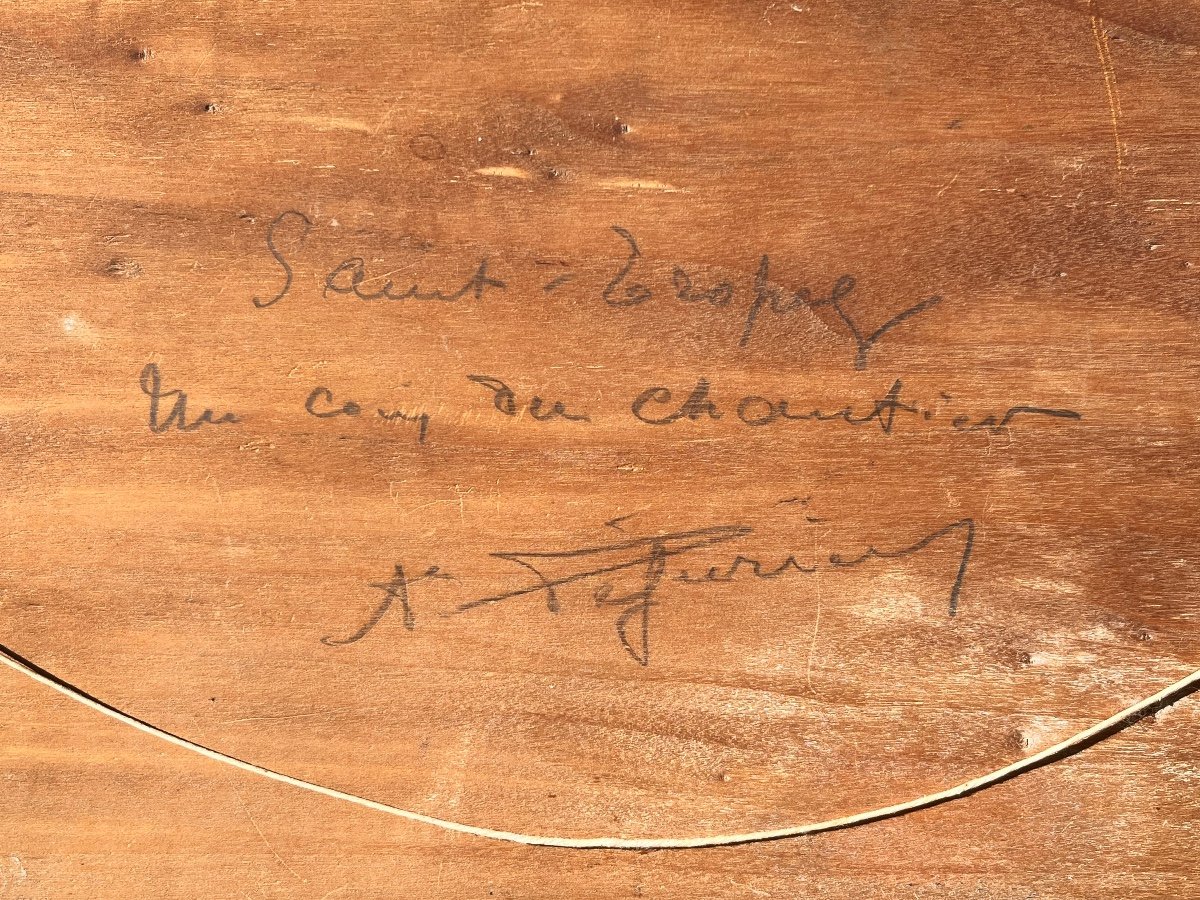 Saint-Tropez
Un coin du chantier
A.